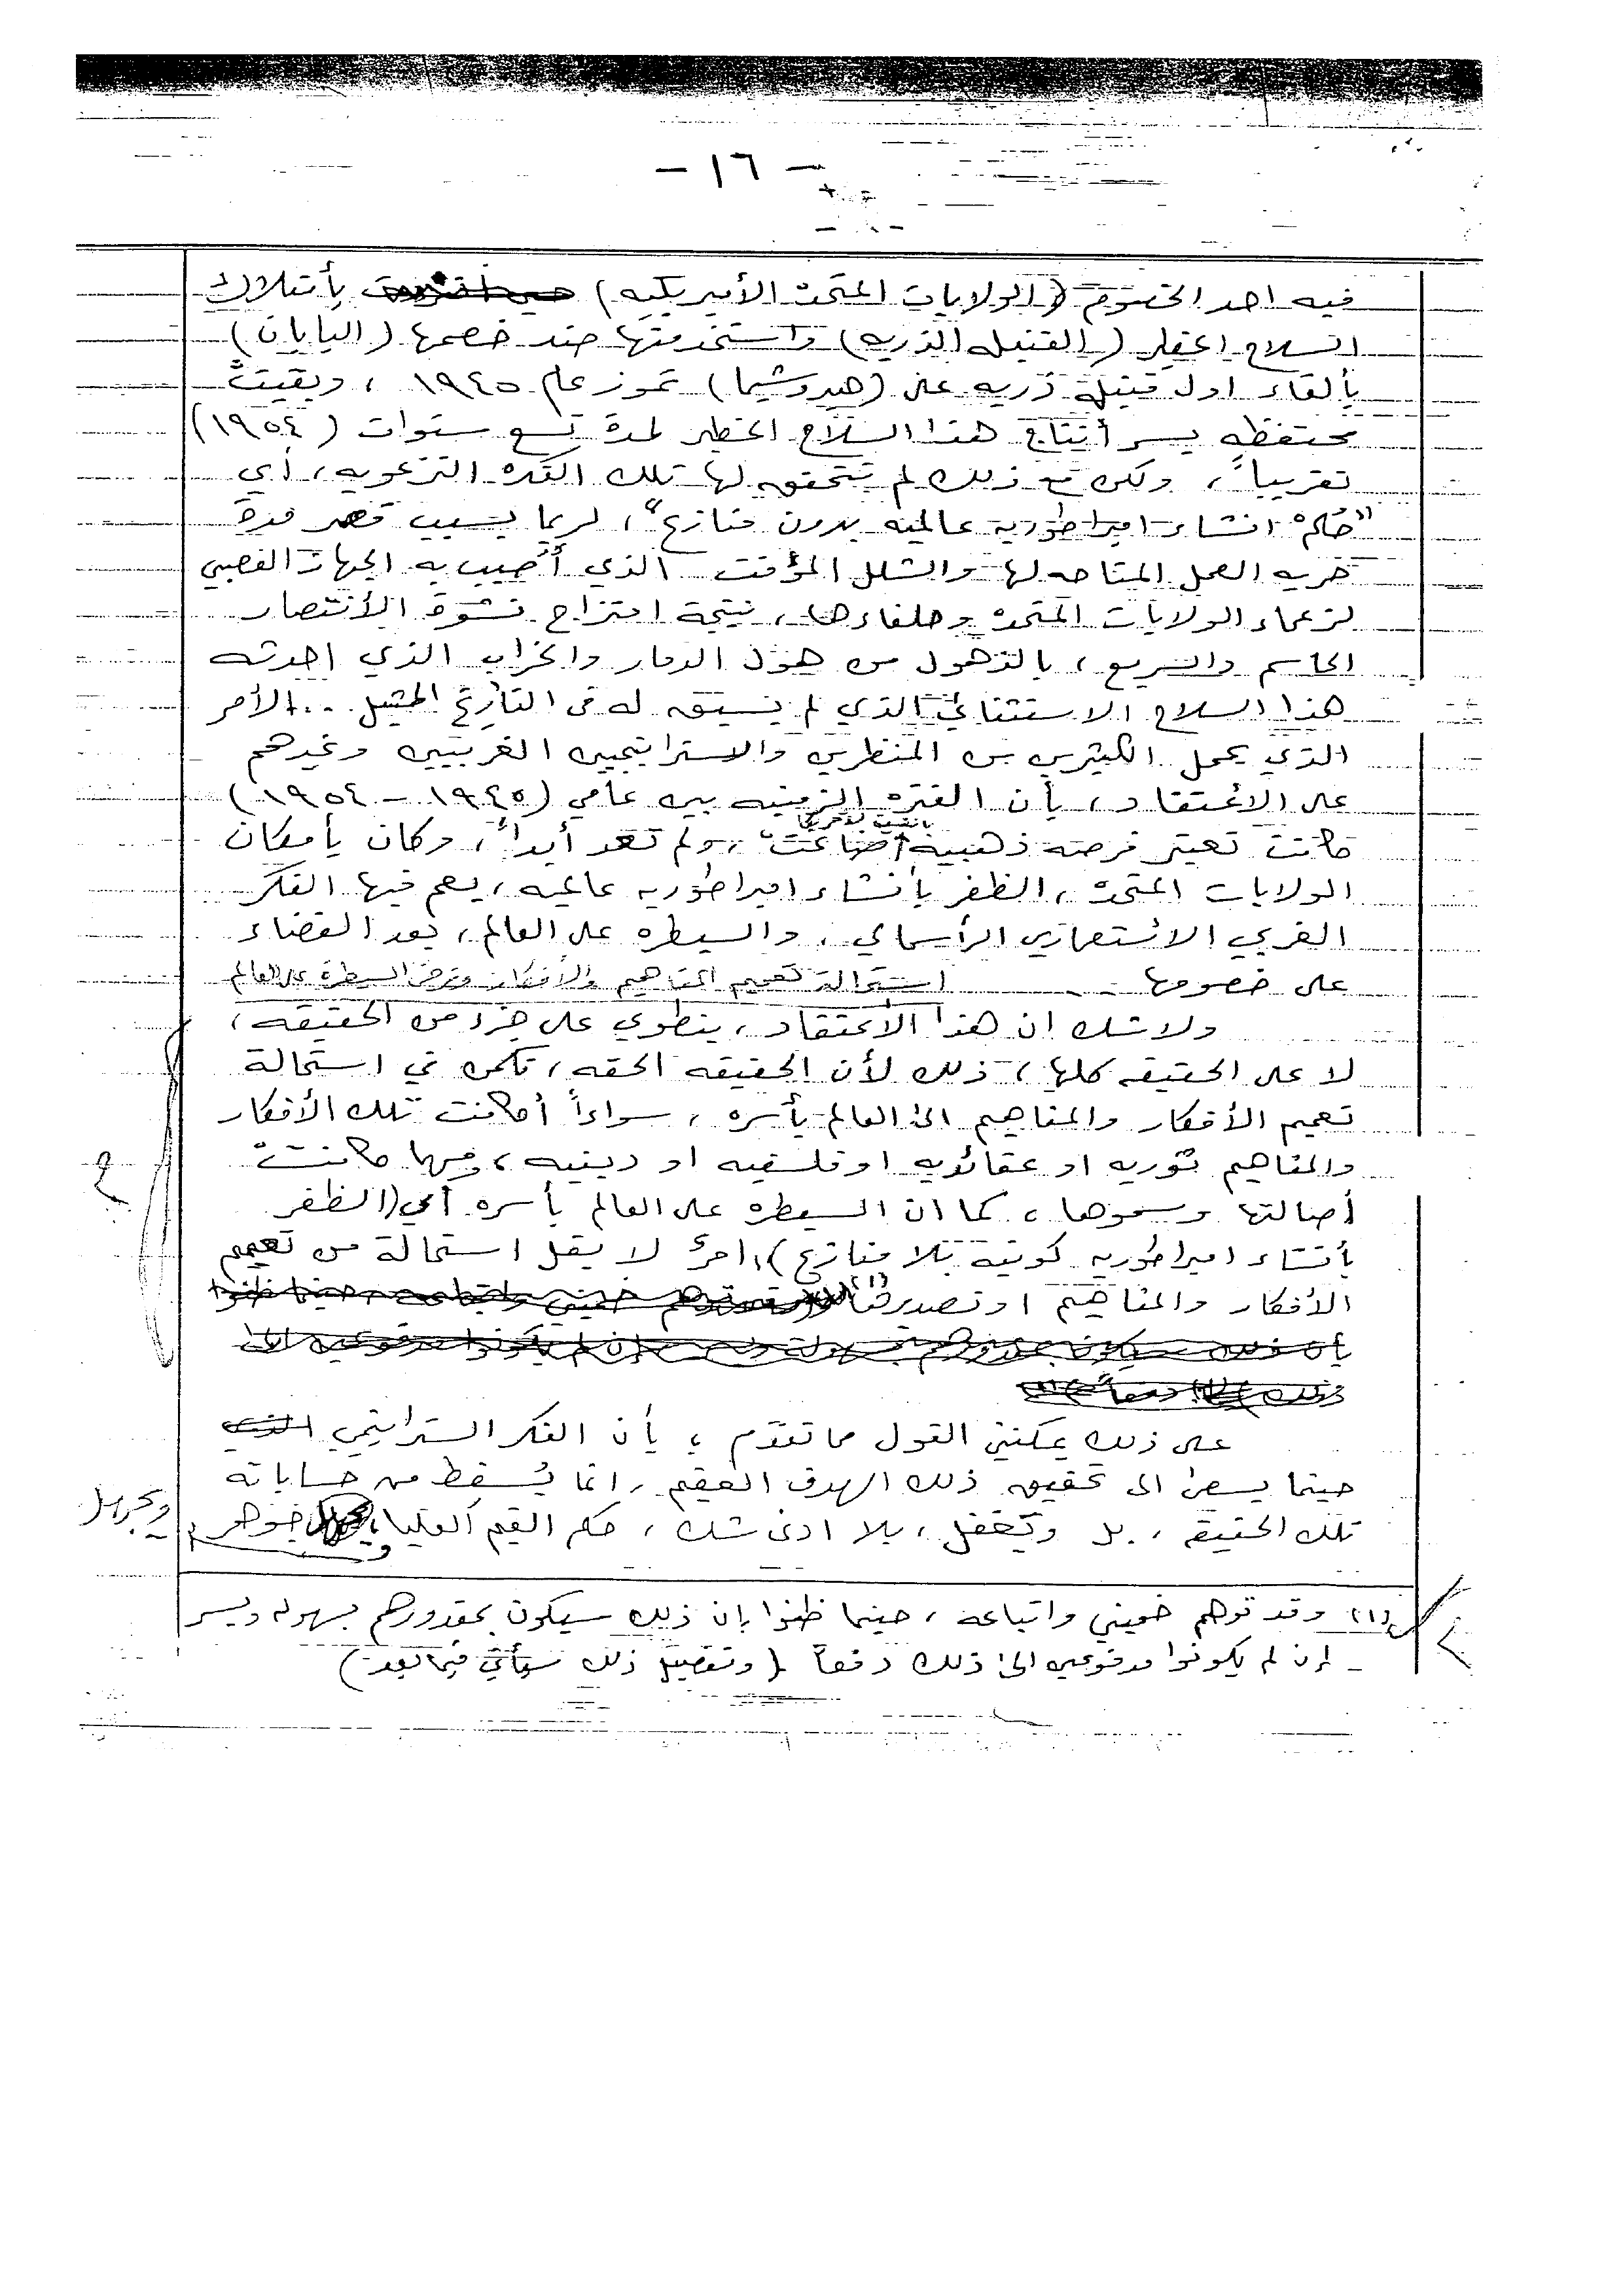 - ١٦ -
فيه احد الخصوم (الولايات المتحدة الأميريكيه) بأمتلاك
السلاح الخطير (القنبله الذريه) واستخدمتها ضد خصمها (اليابان)
بألقاء اول قنبلة ذريه على (هيروشيما) تموز عام ١٩٤٥ ، وبقيت
محتفظه بسر أنتاج هذا السلاح الخطير لمدة تسع سنوات (١٩٥٤)
تقريباً ، ولكن مع ذلك لم يتحقق لها تلك الفكره النزعويه ، أي
"حُلم انشاء امبراطوريه عالميه بدون منازع" ، لربما بسبب قصر مدة
حريه العمل المتاحه لها والشلل المؤقت الذي أُصيب به الجهاز العصبي
لزعماء الولايات المتحدة وحلفاءها ، نتيجة امتزاج نشوة الأنتصار
الحاسم والسريع ، بالذهول من هول الدمار والخراب الذي احدثه
هذا السلاح الاستثنائي الذي لم يسبق له في التأريخ المثيل ... الأمر
الذي يحمل الكثيرين من المنظرين والاستراتيجيين الغربيين وغيرهم
على الاعتقاد ، بأن الفتره الزمنيه بين عامي (١٩٤٥ - ١٩٥٤)
كانت تعتبر فرصه ذهبية ضاعت ، ولم تعد أبداً ، وكان بأمكان
الولايات المتحدة ، الظفر بأنشاء امبراطوريه عالميه ، يعم فيها الفكر
الغربي الاستعماري الرأسمالي ، والسيطره على العالم ، بعد القضاء
على خصومها ...
استحالة تعميم المفاهيم والأفكار وفرض السيطرة على العالم
ولاشك ان هذا الأعتقاد ، ينطوي على جزء من الحقيقه ،
لا على الحقيقه كلها ، ذلك لأن الحقيقه الحقه ، تكمن في استحالة
تعميم الأفكار والمفاهيم الى العالم بأسره ، سواءاً أكانت تلك الأفكار
والمفاهيم ثوريه او عقائديه او فلسفيه او دينيه ، ومهما كانت
أصالتها وسموها ، كما ان السيطره على العالم بأسره أي (الظفر
بأنشاء امبراطوريه كونية بلا منازع) ، امرٌ لا يقل استحالة من تعميم
الأفكار والمفاهيم او تصديرها (١) وقد توهم خميني واتباعه ، حينما ظنوا
بأن ذلك سيكون بمقدورهم بسهولة ويسر إن لم يكونوا مدفوعين الى
ذلك دفعاً
على ذلك يمكنني القول مما تقدم ؛ بأن الفكر الستراتيجي الذي
حينما يسعى الى تحقيق ذلك الهدف العقيم ، انما يُسقط من حساباته
تلك الحقيقه ، بل ويغفل ، بلا ادنى شك ، حكم القيم العليا ، جوهر
ويجهل
(١) وقد توهم خميني واتباعه ، حينما ظنوا بإن ذلك سيكون بمقدورهم بسهوله ويسر
- إن لم يكونوا مدفوعين الى ذلك دفعاً . (وتفصيل ذلك سيأتي فيما بعد)